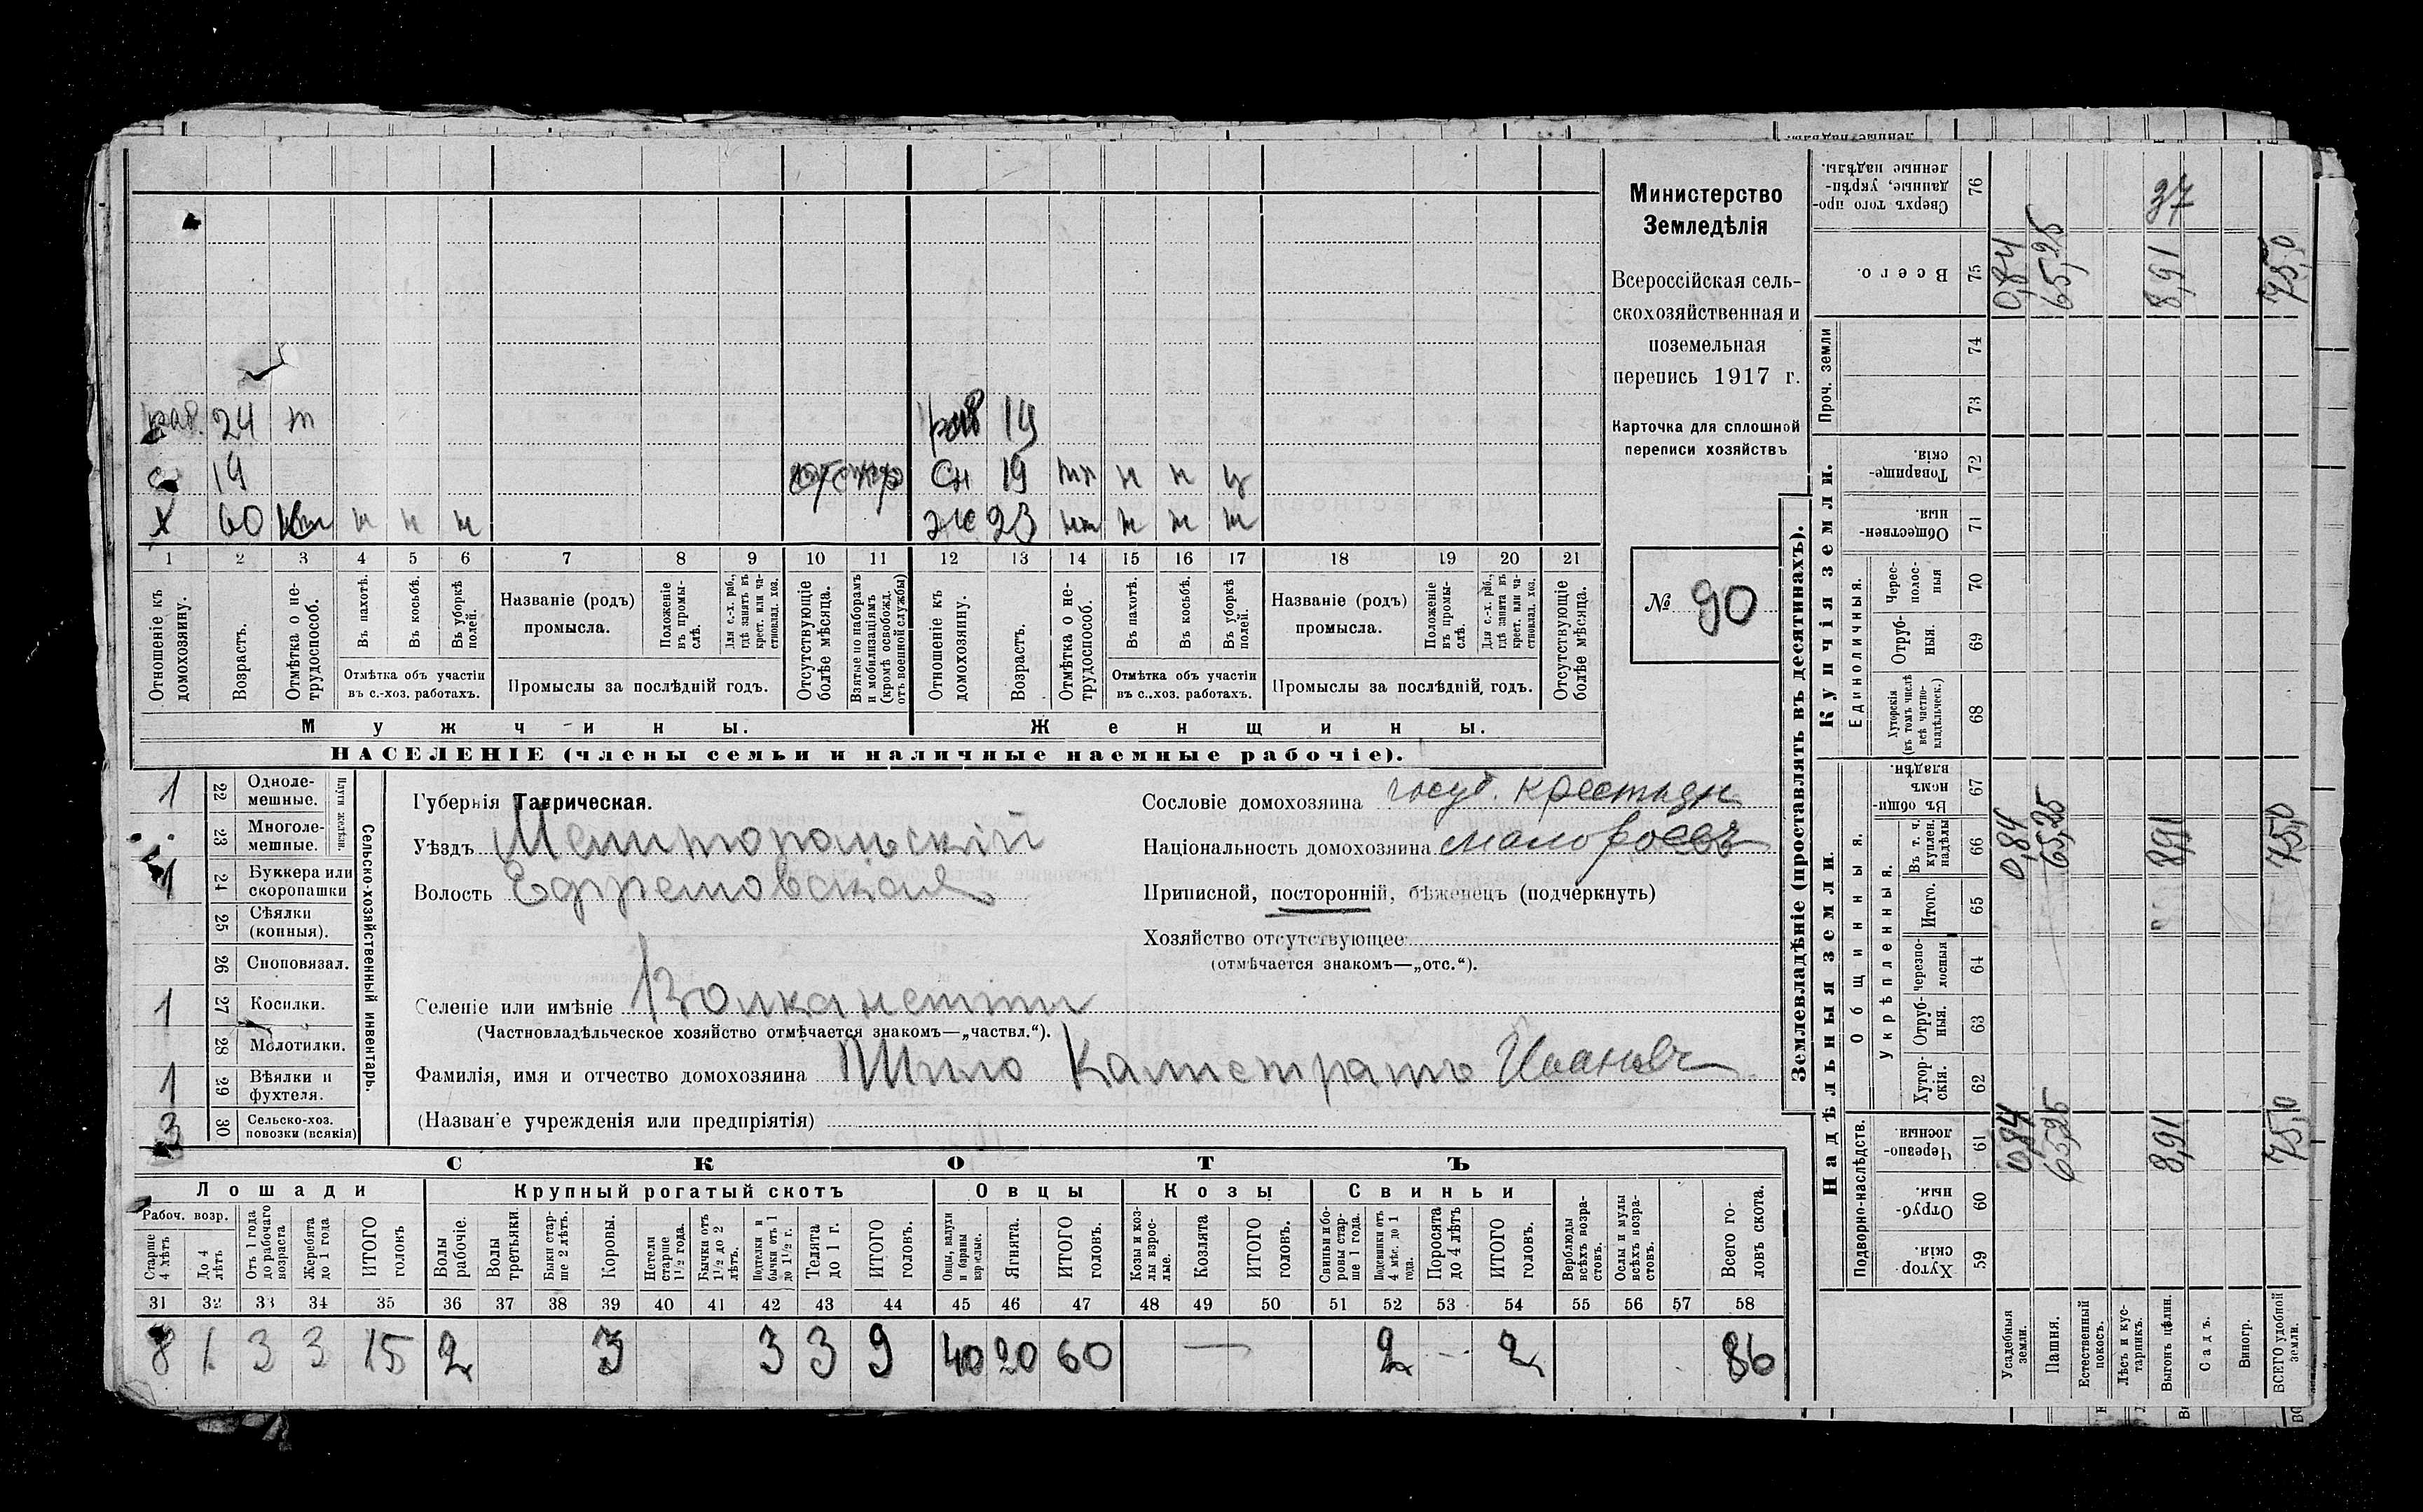 раб. 24 т раб 14
с 19 СН 19 нт н н у
х 60 н н н ж 23 нт н н н
1 2 3 4 5 6 7 8 9 10 11 12 13 14 15 16 17 18 19 20 21
Отношеніе къ домохозяину.
Возрастъ.
Отмѣтка о нетрудоспособ.
Въ пахотѣ.
Въ косьбѣ.
Въ уборкѣ полей.
Отмѣтка объ участіи въ с.-хоз. работахъ.
Названіе (родъ) промысла.
Положеніе въ промыслѣ.
Для с.-х. раб., гдѣ занятъ въ крест. или частновлад. хоз.
Промыслы за послѣдній годъ.
Отсутствующіе болѣе мѣсяца.
Взятые по наборамъ и мобилизаціямъ (кромѣ освобожд. отъ военной службы)
Отношеніе къ домохозяину.
Возрастъ.
Отмѣтка о нетрудоспособ.
Въ пахотѣ.
Въ косьбѣ.
Въ уборкѣ полей.
Отмѣтка объ участіи въ с.-хоз. работахъ.
Названіе (родъ) промысла.
Положеніе въ промыслѣ.
Для с.-х. раб., гдѣ занята въ крест. или частновлад. хоз.
Промыслы за послѣдній годъ.
Отсутствующіе болѣе мѣсяца.
Мужчины. Женщины.
НАСЕЛЕНІЕ (члены семьи и наличные наемные рабочіе).
Министерство
Земледѣлія
Всероссійская сель-
скохозяйственная и
поземельная
перепись 1917 г.
Карточка для сплошной
переписи хозяйствъ
№ 90
Сельско-хозяйственный инвентарь.
Плуги желѣзн.
1 22 Однолемешные.
23 Многолемешные.
1 24 Буккера или скоропашки
25 Сѣялки (конныя).
26 Сноповязал.
1 27 Косилки.
28 Молотилки.
1 29 Вѣялки и фухтеля.
3 30 Сельско-хоз. повозки (всякія)
Губернія Таврическая.
Уѣздъ Мелитопольскій
Волость Ефремовская
Селеніе или имѣніе Волканешты
(Частновладѣльческое хозяйство отмѣчается знакомъ—„частвл.“).
Фамилія, имя и отчество домохозяина Шило Калистратъ Ивановъ
(Названіе учрежденія или предпріятія)
Сословіе домохозяина госуд. крестьян
Національность домохозяина малороссъ
Приписной, посторонній, бѣженецъ (подчеркнуть)
Хозяйство отсутствующее
(отмѣчается знакомъ—„отс.“).
СКОТЪ
Лошади Крупный рогатый скотъ Овцы Козы Свиньи
Рабоч. возр.
Старше 4 лѣтъ
До 4 лѣтъ
Отъ 1 года до рабочаго возраста
Жеребята до 1 года
ИТОГО головъ
Волы рабочіе.
Волы третьяки.
Быки старше 2 лѣтъ.
Коровы.
Нетели старше 1 1/2 года.
Бычки отъ 1 1/2 до 2 лѣтъ.
Подтелки и бычки отъ 1 до 1 1/2 г.
Телята до 1 г.
ИТОГО головъ.
Овцы, валухи и бараны взрослые.
Ягнята.
ИТОГО головъ.
Козы и козлы взрослые.
Козлята
ИТОГО головъ.
Свиньи и боровы старше 1 года.
Подсвинки отъ 4 мѣс. до 1 года.
Поросята до 4 лѣтъ
ИТОГО головъ.
Верблюды всѣхъ возрастовъ.
Ослы и мулы всѣхъ возрастовъ.
Всего головъ скота.
31 32 33 34 35 36 37 38 39 40 41 42 43 44 45 46 47 48 49 50 51 52 53 54 55 56 57 58
8 1 3 3 15 2 3 3 3 9 40 20 60 — 2 2 86
Землевладѣніе (проставлять въ десятинахъ).
Надѣльныя земли. Купчія земли. Проч. земли
Подворно-наслѣдств. Общинныя. Укрѣпленныя. Единоличныя.
59 Хуторскія.
60 Отрубныя.
61 Черезполосныя.
62 Хуторскія.
63 Отрубныя.
64 Черезполосныя
65 Итого.
66 Въ т. ч. куплен. надѣлы
67 Въ общинномъ владѣн.
68 Хуторскія (въ томъ числѣ всѣ частновладѣльческ.)
69 Отрубныя.
70 Череcполосныя
71 Общественныя.
72 Товарищескія.
73
74
75 Всего.
76 Сверхъ того проданные, укрѣпленные надѣлы.
Усадебныя земли. 0,84 0,84 0,84
Пашня. 65,25 65,25 65,25
Естественный покосъ.
Лѣсъ и кустарникъ.
Выгонъ цѣлин. 8,91 8,91 8,91 37
Садъ.
Виногр.
ВСЕГО удобной земли. 75,0 75,0 75,0